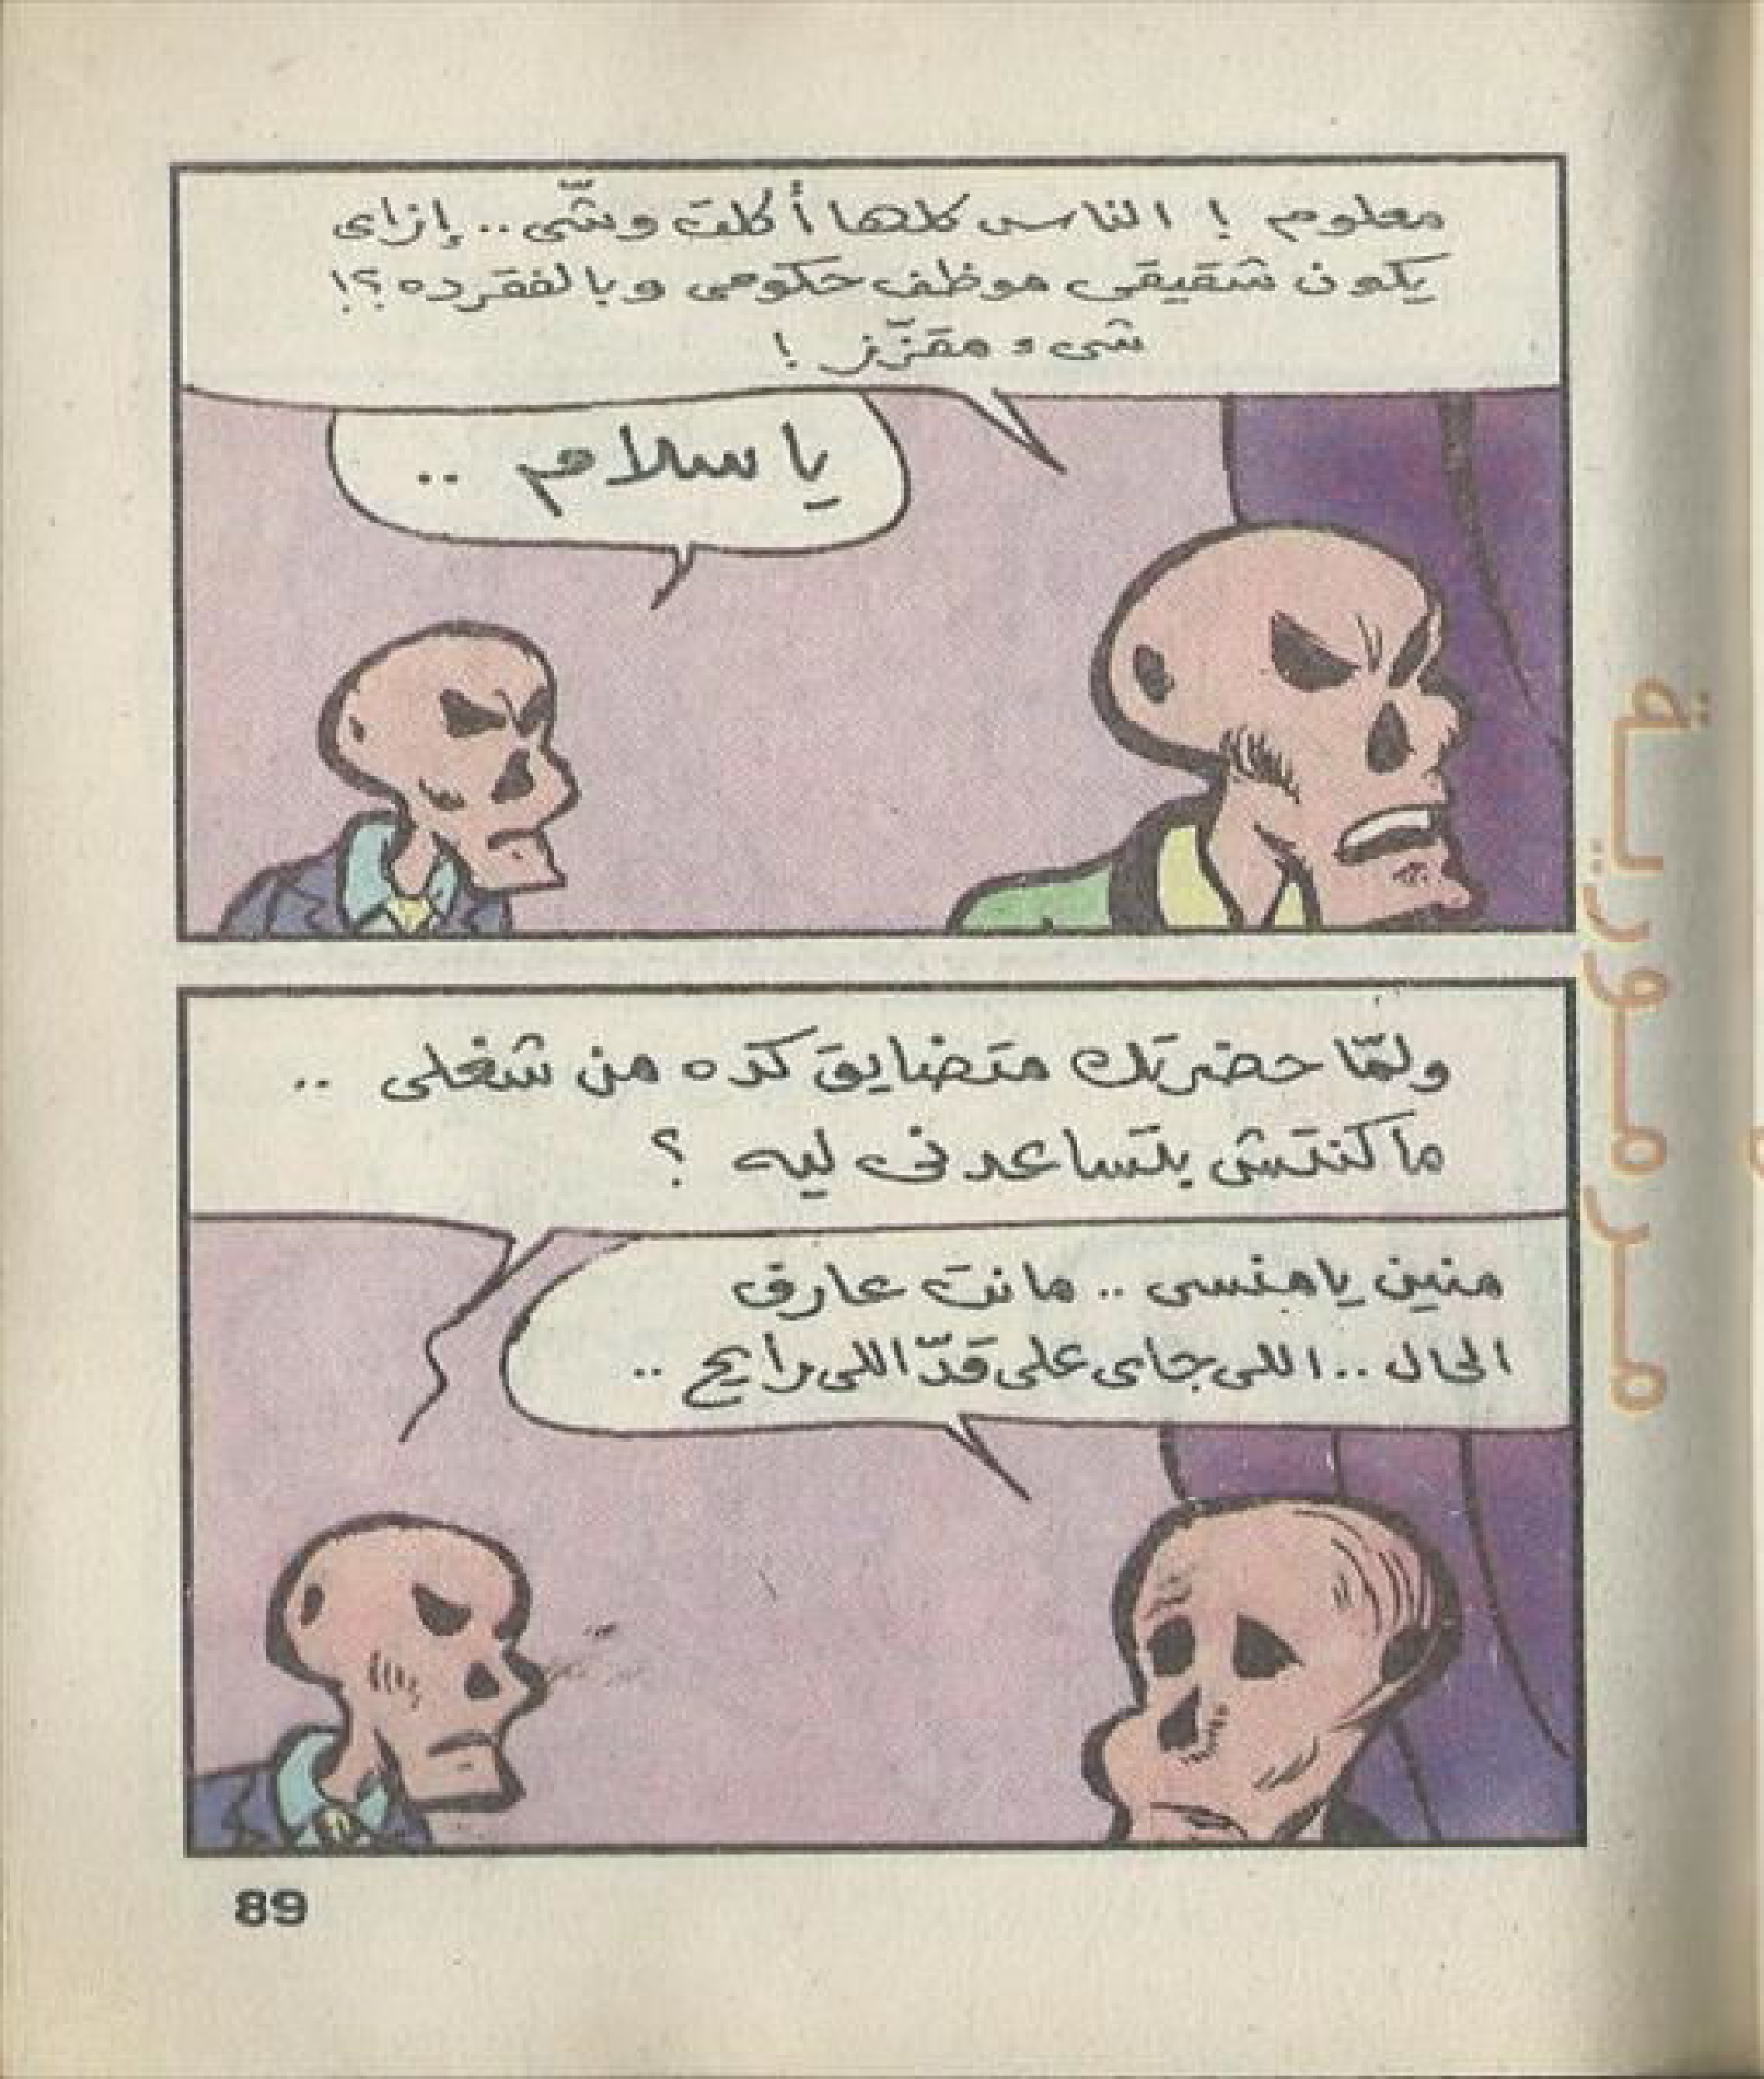 معلوم ! الناس كلها أكلت وشّى .. إزاى
يكون شقيقى موظف حكومى وبالفقرده ؟!
شىء مقزّز !
يا سلام ..
ولمّا حضرتك متضايق كده من شغلى ..
ما كنتش بتساعدنى ليه ؟
منين يا منسى .. مانت عارف
الحال .. اللى جاى على قدّ اللى رايح ..
مرمورية
89